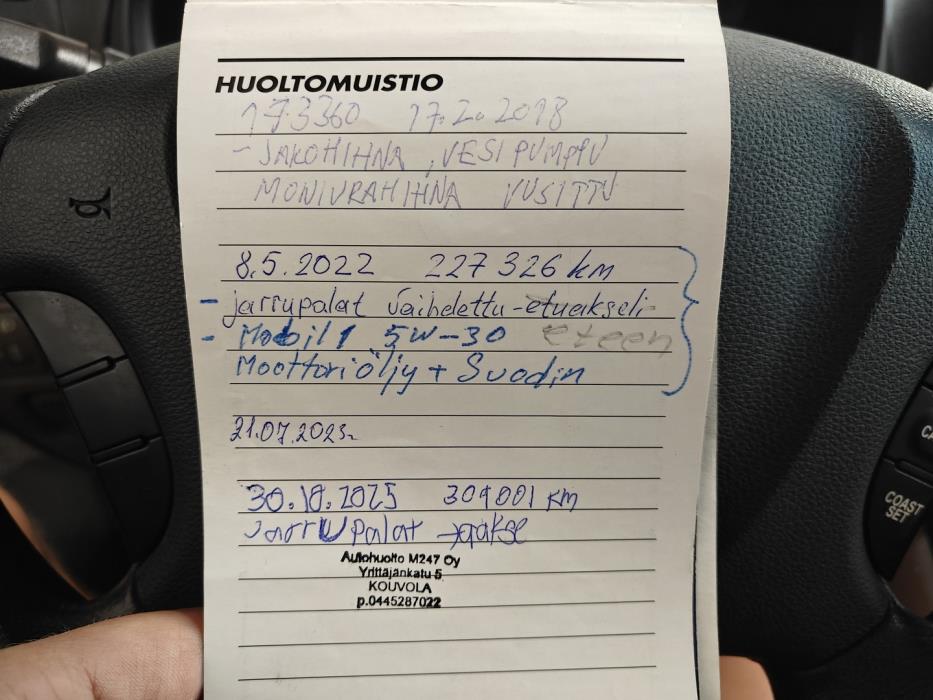 HUOLTOMUISTIO
173360 17.2.2018
- JAKOHIHNA, VESIPUMPPU
MONIURAHIHNA UUSITTU
8.5.2022 227 326 km
- jarrupalat vaihdettu - etuakseli
- Mobil 1 5W-30 eteen
Moottoriöljy + Suodin
21.07.2023
30.10.2025 309001 km
Jarrupalat
Autohuolto M247 Oy
Yrittäjänkatu 5
KOUVOLA
p.0445287022
COAST
SET